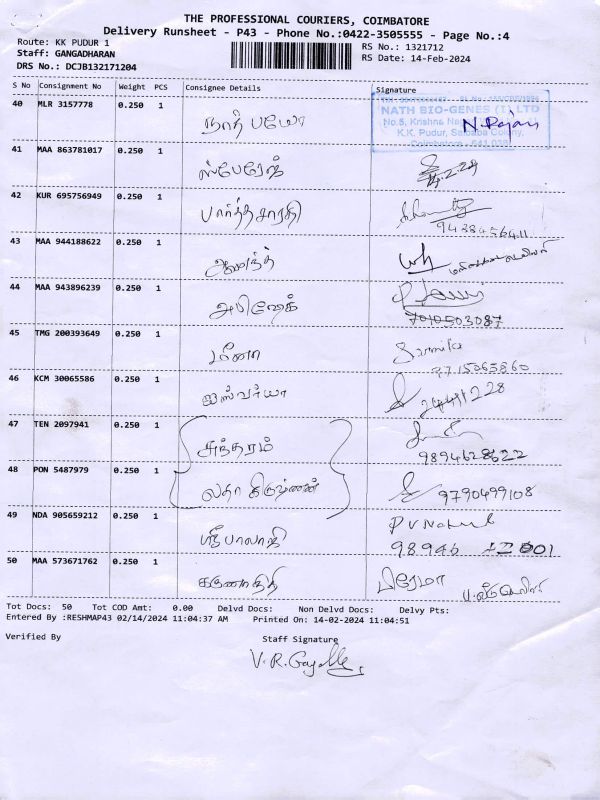 THE PROFESSIONAL COURIERS, COIMBATORE
Delivery Runsheet - P43 - Phone No.:0422-3505555 - Page No.:4
Route: KK PUDUR 1 RS No.: 1321712
Staff: GANGADHARAN RS Date: 14-Feb-2024
DRS No.: DCJB132171204
S No Consignment No Weight PCS Consignee Details Signature
40 MLR 3157778 0.250 1 நாத் பயோ
NATH BIO-GENES (I) LTD
No.5, Krishna N.Rajan
K.K. Pudur, Saibaba Colony,
Coimbatore - 641 038
41 MAA 863781017 0.250 1 ஸ்பேரோஜ்
42 KUR 695756949 0.250 1 பார்த்தசாரதி
9438456411
43 MAA 944188622 0.250 1 ஆனந்த்
44 MAA 943896239 0.250 1 அபிஷேக்
7010503087
45 TMG 200393649 0.250 1 மீனா Sarmila
9715065860
46 KCM 30065586 0.250 1 ஐஸ்வர்யா
47 TEN 2097941 0.250 1 சுந்தரம்
9894628622
48 PON 5487979 0.250 1 லதா கிருஷ்ணன் 9790499108
49 NDA 905659212 0.250 1 ஸ்ரீபாலாஜி
98946 001
50 MAA 573671762 0.250 1 கருணாநிதி பிரேமா
Tot Docs: 50 Tot COD Amt: 0.00 Delvd Docs: Non Delvd Docs: Delvy Pts:
Entered By :RESHMAP43 02/14/2024 11:04:37 AM Printed On: 14-02-2024 11:04:51
Verified By Staff Signature
V. R. Gayathri